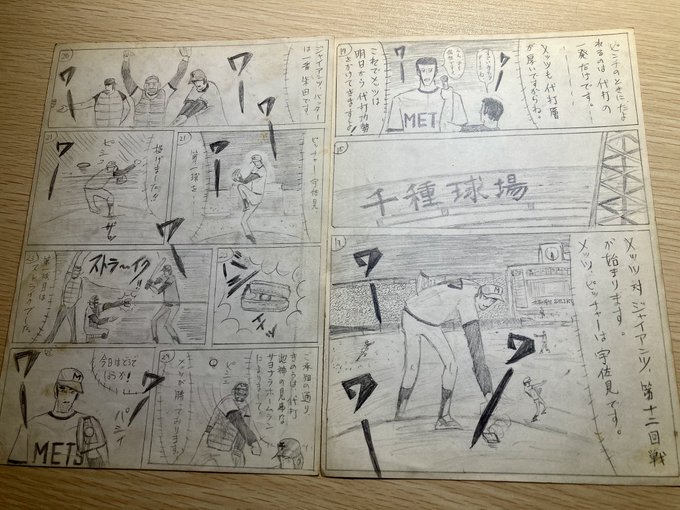 ピンチのときにたよ
れるのは代打の
一発だけです。
メッツも代打層
が厚いですからね
これでメッツは
明日から代打攻勢
をかけてきますよ!
ワー
MET
千種球場
メッツ対ジャイアンツ第十二回戦
が始まります。
メッツ・ピッチャーは宇佐見です。
ワー
ワー
ワー
ジャイアンツ・バッター
は一番
ワー
ワー
ピッチャー宇佐見
第一球を
ワー
投げました!!
ビシュ
ザッ
ワー
バシーッ
ストラ〜イク!!
第一球目は
ストライクでした。
ワー
ご承知の通り
きのうは代打
サヨナラホームラン
によりまして
メッツが勝っております。
ワー
今日はどうで
しょうか!
パシィ
ワー
M
METS